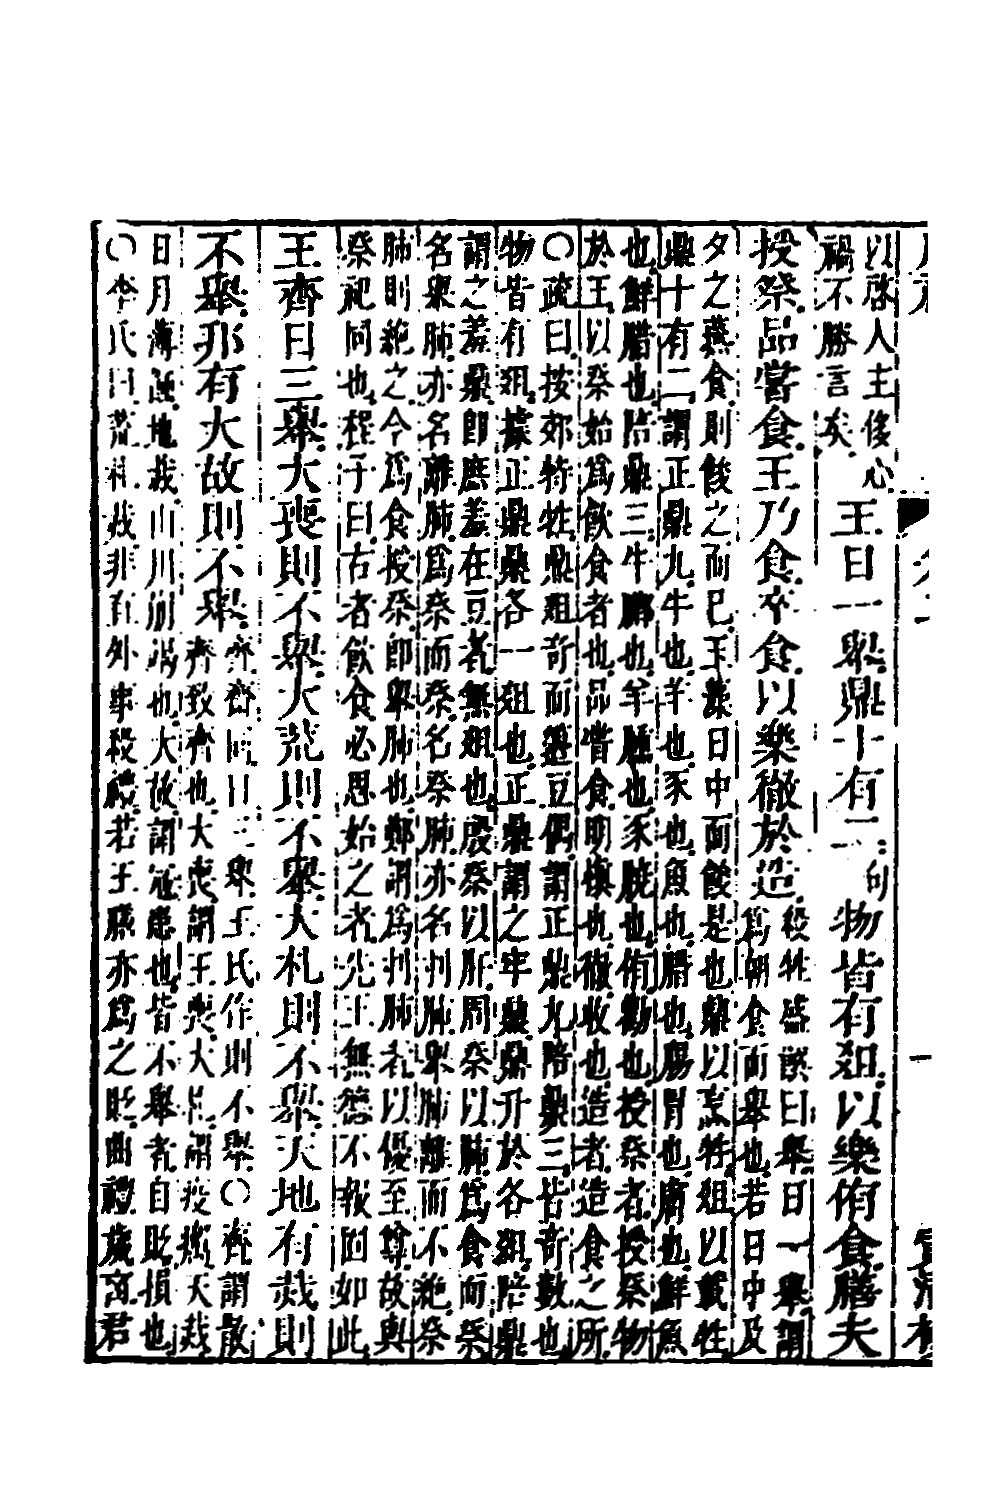 以啓人主侈心
禍不勝言矣
王日一舉鼎十有二句物皆有俎以樂侑食膳夫
授祭品嘗食王乃食卒食以樂徹於造
殺牲盛饌曰舉日一舉謂
爲朝食而舉也若日中及
夕之燕食則餕之而已玉藻日中而餕是也鼎以烹牲俎以載牲
鼎十有二謂正鼎九牛也羊也豕也魚也腊也腸胃也膚也鮮魚
也鮮腊也陪鼎三牛膷也羊臐也豕膮也侑勸也授祭者授祭物
於王以祭始爲飲食者也品嘗食明慎也徹收也造者造食之所
〇疏曰按郊特牲鼎俎奇而籩豆偶謂正鼎九陪鼎三皆奇數也
物皆有俎據正鼎鼎各一俎也正鼎謂之牢鼎鼎升於各俎陪鼎
謂之羞鼎即庶羞在豆者無俎也殷祭以肝周祭以肺爲食而祭
名舉肺亦名離肺爲祭而祭名祭肺亦名刌肺舉肺離而不絶祭
肺則絶之今爲食授祭即舉肺也鄭謂爲刌肺者以優至尊故與
祭祀同也程子曰古者飲食必思始之者先王無德不報固如此
王齊日三舉大喪則不舉大荒則不舉大札則不舉天地有烖則
不舉邦有大故則不舉
齊齋同日三舉王氏作則不舉〇齊謂散
齊致齊也大喪謂王喪大札謂疫癘天烖
日月薄蝕地烖山川崩竭也大故謂寇患也皆不舉者自貶損也
〇李氏曰荒札烖非有外事殺禮若王膳亦爲之貶曲禮歲凶君